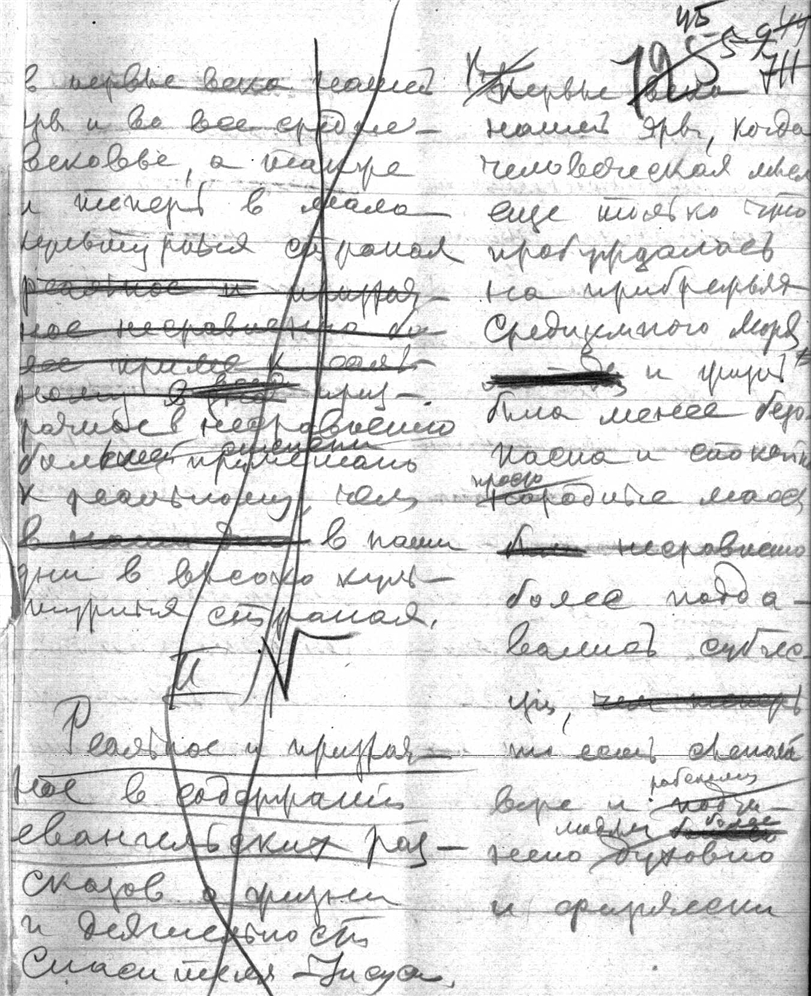 в первые века нашей
эры и во все средне-
вековье, а также
и теперь в мало
культурных странах
реальное и призрач-
ное несравненно бо-
лее
ному в приз-
рачное в несравненно
большей степени примешано
к реальному, чем
в наши дни в наши
дни в высоко куль-
турных странах.
II
Реальное и призрач-
ное в содержании
евангельских рас-
сказов о жизни
и деятельности
Спасителя-Иисуса.
45
19
В первые века
нашей эры, когда
человеческая мысль
еще только что
пробуждалась
на прибрежьях
Средиземного Моря
и жизнь
была менее безо
пасна и спокойна
народные массы
несравненно
более подда-
вались суггес
ции, чем теперь
то есть слепой
рабскому
вере и подчи-
нению духовно
и физически